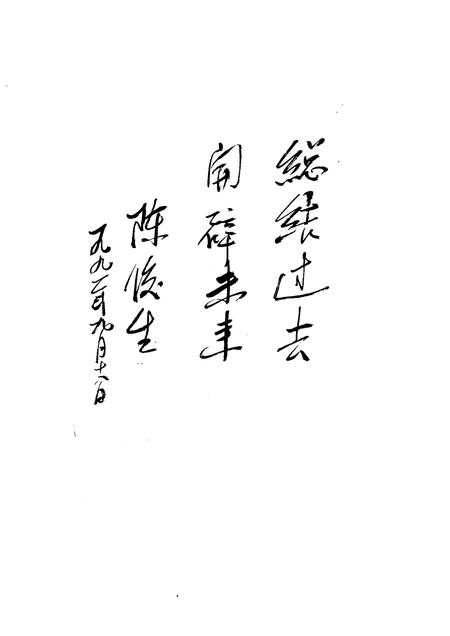 總結过去
開辟未来
陈俊生
一九九一年九月十八日